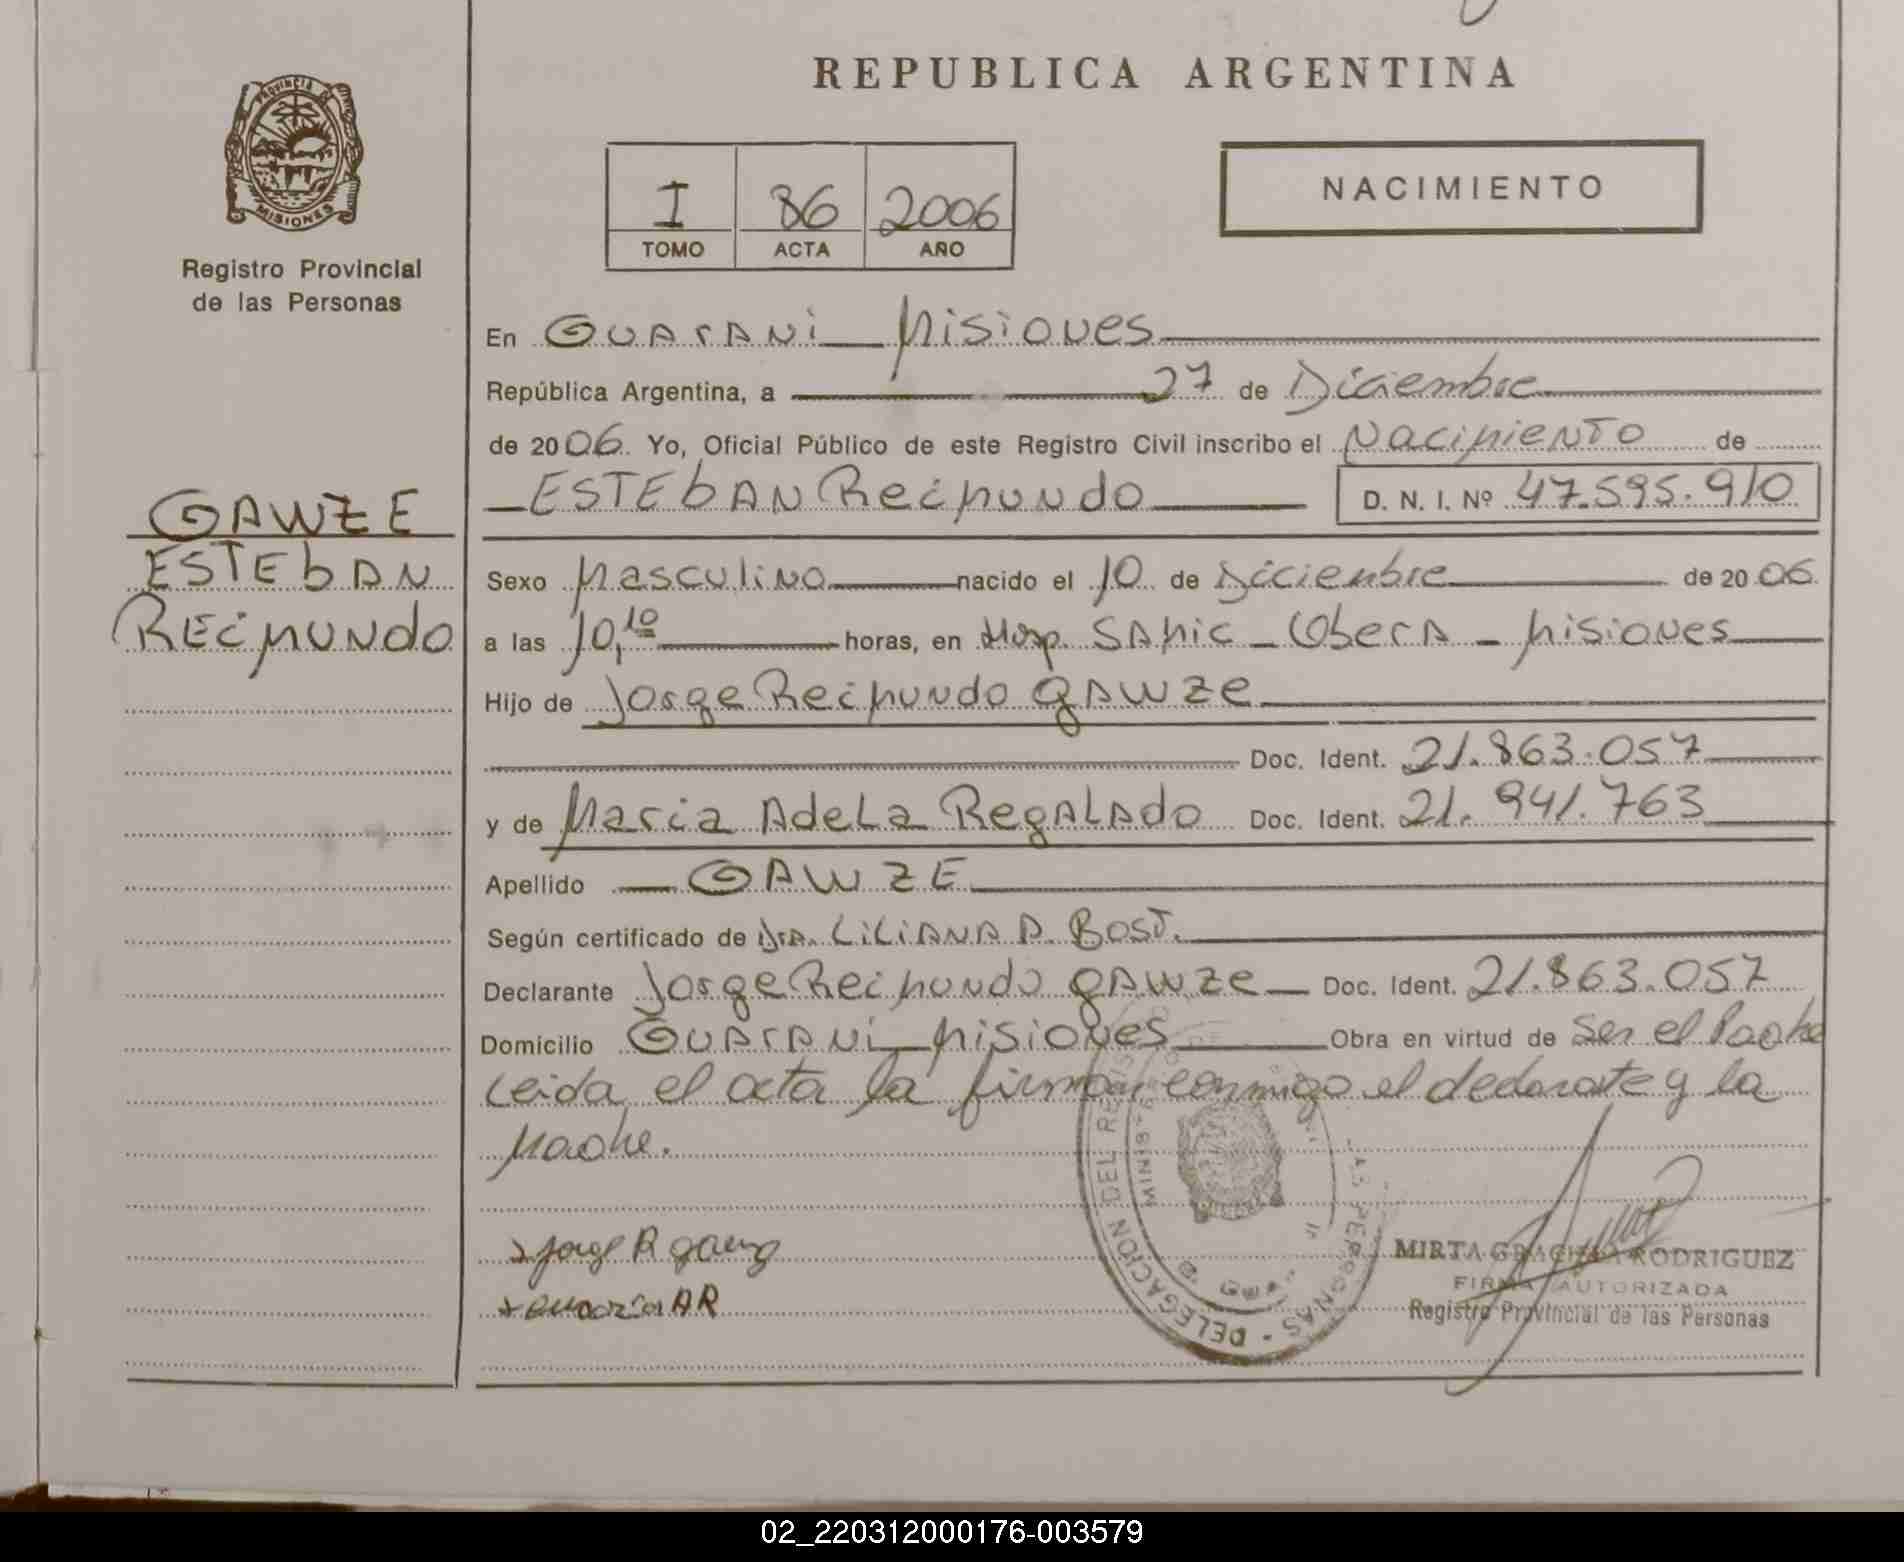 REPUBLICA ARGENTINA
PROVINCIA DE
MISIONES
Registro Provincial
de las Personas
I 86 2006
TOMO ACTA AÑO
NACIMIENTO
En Guarani Misiones
República Argentina, a 27 de Diciembre
de 2006 Yo, Oficial Público de este Registro Civil inscribo el Nacimiento de
ESTEbAN Reimundo D. N. I. Nº 47.595.910
GAWZE
ESTEbAN
REiMUNdo
Sexo Masculino nacido el 10 de Diciembre de 2006
a las 10,10 horas, en Hosp. SAMic - Obera - Misiones
Hijo de Jorge Reimundo GAWZe
Doc. Ident. 21.863.057
y de Maria AdeLa RegALAdo Doc. Ident. 21.941.763
Apellido GAWZE
Según certificado de Dra. LiLiANA A. Bost.
Declarante Jorge Reimundo GAWZe Doc. Ident. 21.863.057
Domicilio Guarani Misiones Obra en virtud de Ser el Padre
Leida el acta la firman conmigo el declarate y la
Madre.
DELEGACION DEL REGIS PERSONAS
MINIST
Jorge R
AR
MIRTA GRACIELA RODRIGUEZ
FIRMA AUTORIZADA
Registro Provincial de las Personas
02_220312000176-003579